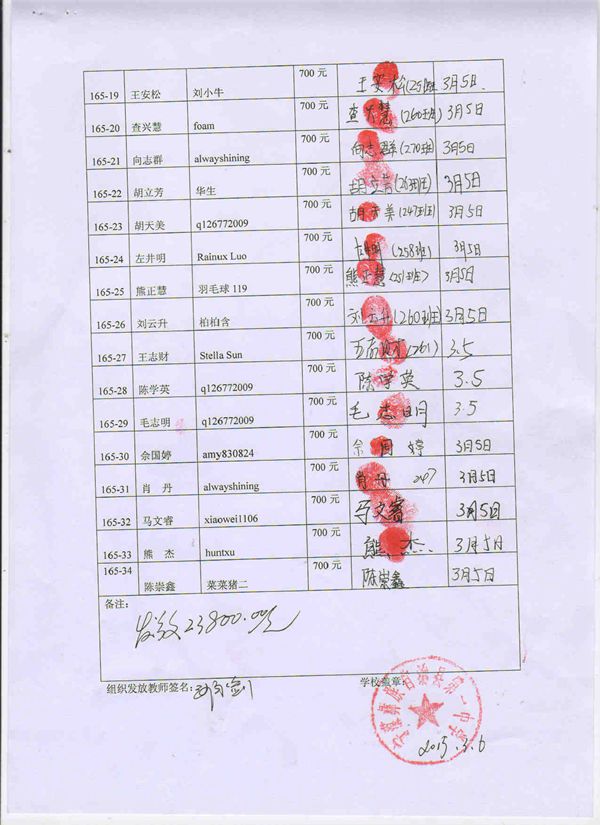 165-19 王安松 刘小牛 700 元 王安松(251班 3月5日.
165-20 查兴慧 foam 700 元 查兴慧(260班) 3月5日
165-21 向志群 alwayshining 700 元 向志群(270班) 3月5日
165-22 胡立芳 华生 700 元 胡立芳 3月5日
165-23 胡天美 q126772009 700 元 胡天美(247班) 3月5日
165-24 左井明 Rainux Luo 700 元 左井明(258班) 3月5日
165-25 熊正慧 羽毛球 119 700 元 熊正慧(251班) 3月5日
165-26 刘云升 柏柏含 700 元 刘云升(260班) 3月5日
165-27 王志财 Stella Sun 700 元 王志财(261) 3.5
165-28 陈学英 q126772009 700 元 陈学英 3.5
165-29 毛志明 q126772009 700 元 毛志明 3.5
165-30 佘国婷 amy830824 700 元 佘国婷 3月5日
165-31 肖 丹 alwayshining 700 元 肖丹 247 3月5日
165-32 马文睿 xiaowei1106 700 元 马文睿 3月5日
165-33 熊 杰 huntxu 700 元 熊杰 3月5日
165-34 陈崇鑫 菜菜猪二 700 元 陈崇鑫 3月5日
备注：
发放23800.00元
组织发放教师签名：
学校盖章：
宁蒗彝族自治县第一中学
2015.3.6